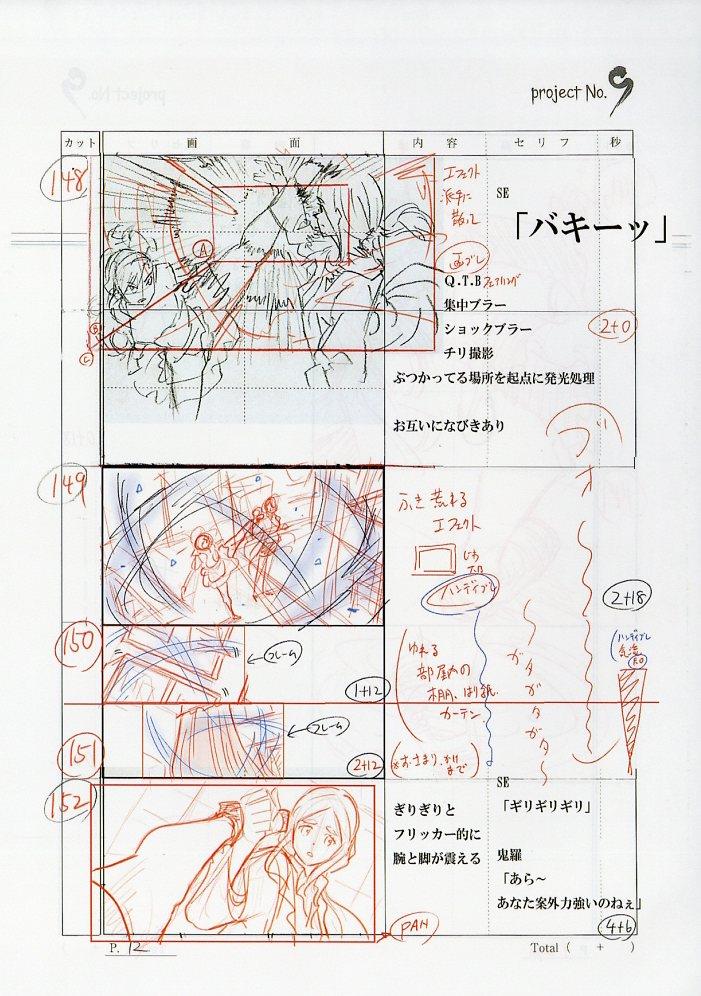 project No.9
カット
画面
内容
セリフ
秒
148
エフェクト
派手に
散って
SE
「バキーッ」
A
画ブレ
Q.T.B
集中ブラー
ショックブラー
2+0
チリ撮影
C
ぶつかってる場所を起点に発光処理
お互いになびきあり
ブオ
149
ふき荒れる
エフェクト
ハンディブレ
2+18
150
フレーム
1+12
ゆれる
部屋内の
カーテン
ガタガタガタ
151
フレーム
2+12
152
SE
ぎりぎりと
「ギリギリギリ」
フリッカー的に
腕と脚が震える
鬼羅
「あら~
あなた案外力強いのねぇ」
PAN
4+6
P. 12
Total ( + )